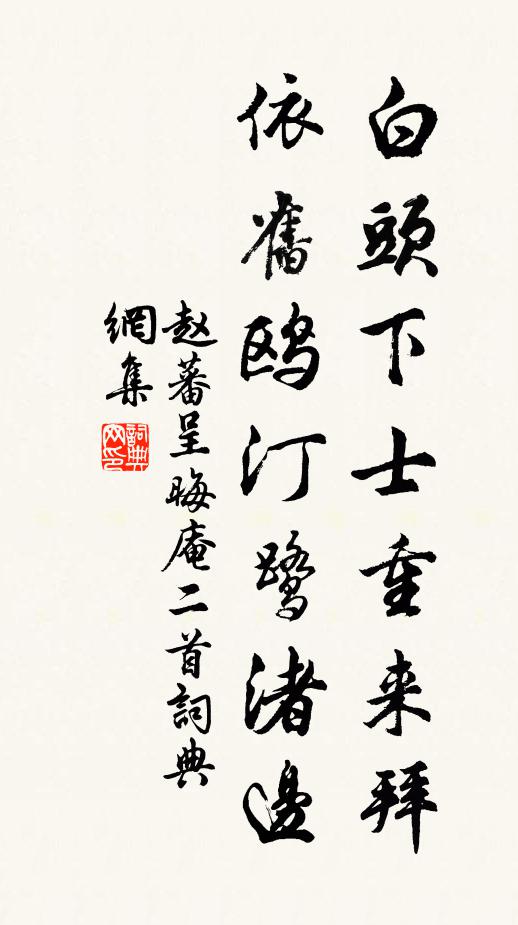 白頭下士重来拜
依舊鸥汀鷺渚邊
赵蕃呈晦庵二首詞典
網集
詞典网印